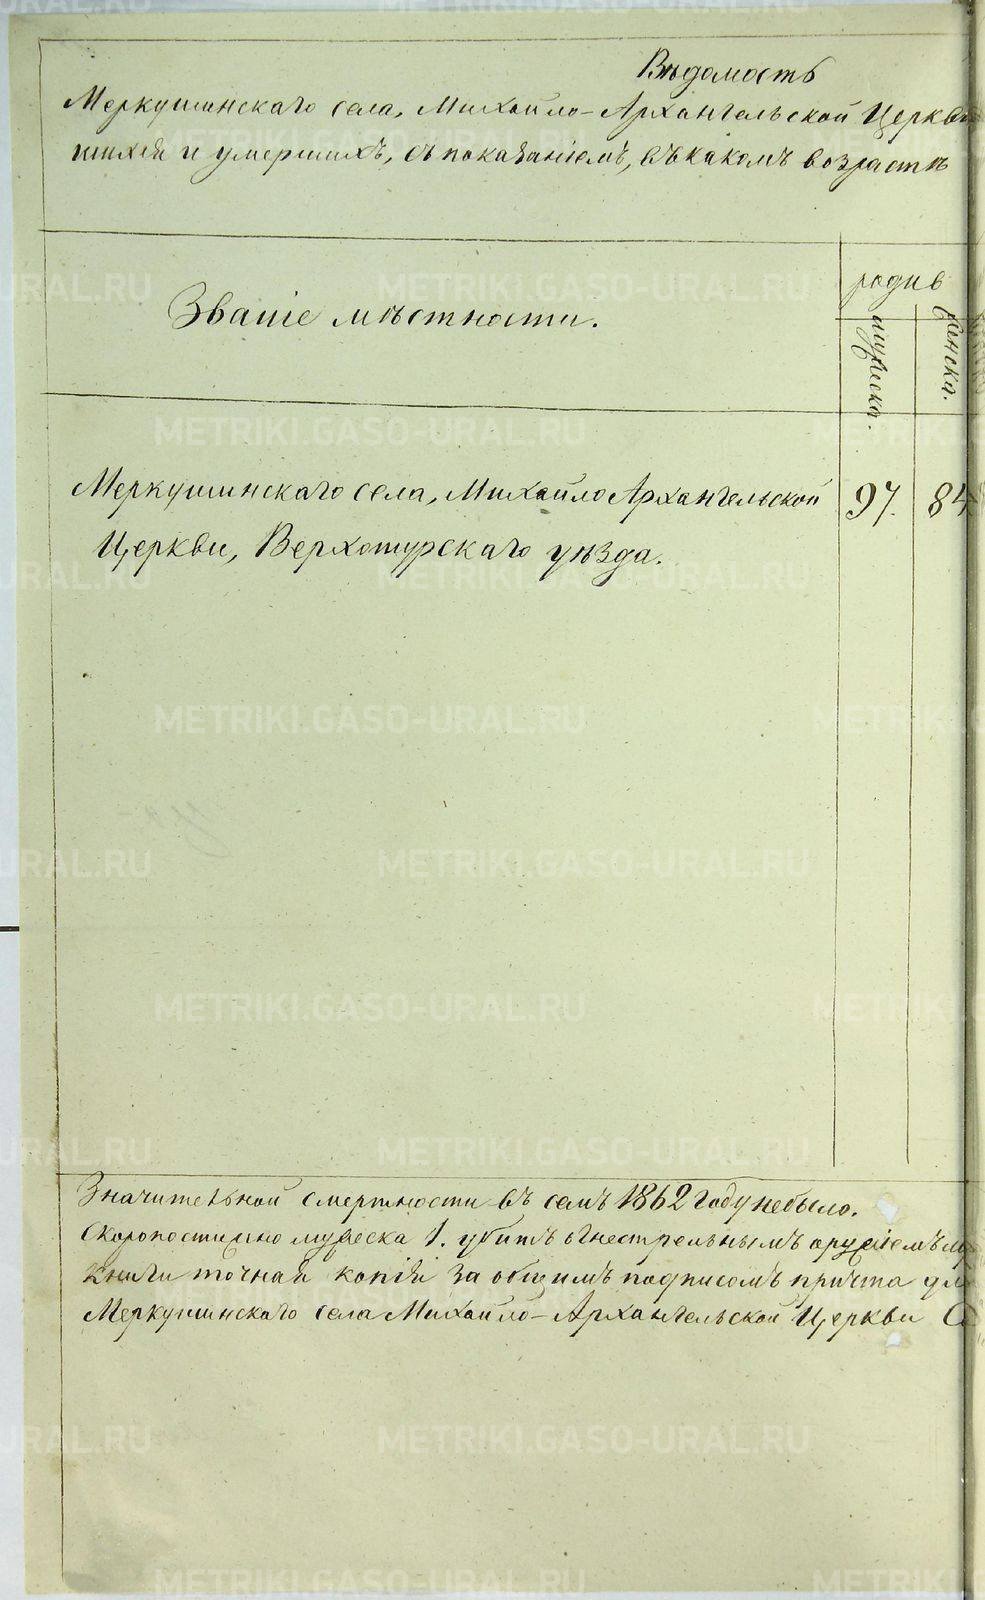 Вѣдомость
Меркушинскаго села, Михайло-Архангельской Церкви
шихся и умершихъ, съ показаніемъ, въ какомъ возрастѣ
Званіе мѣстности.
родив
мужеска.
женска.
Меркушинскаго села, Михайло Архангельской
97.
84
Церкви, Верхотурскаго уѣзда.
Значительной смертности въ семъ 1862 году небыло.
Скоропостижно мужеска 1. убитъ огнестрельнымъ оружіемъ
книги точная копія за общимъ подписомъ причта
Меркушинскаго села Михайло-Архангельской Церкви
METRIKI.GASO-URAL.RU